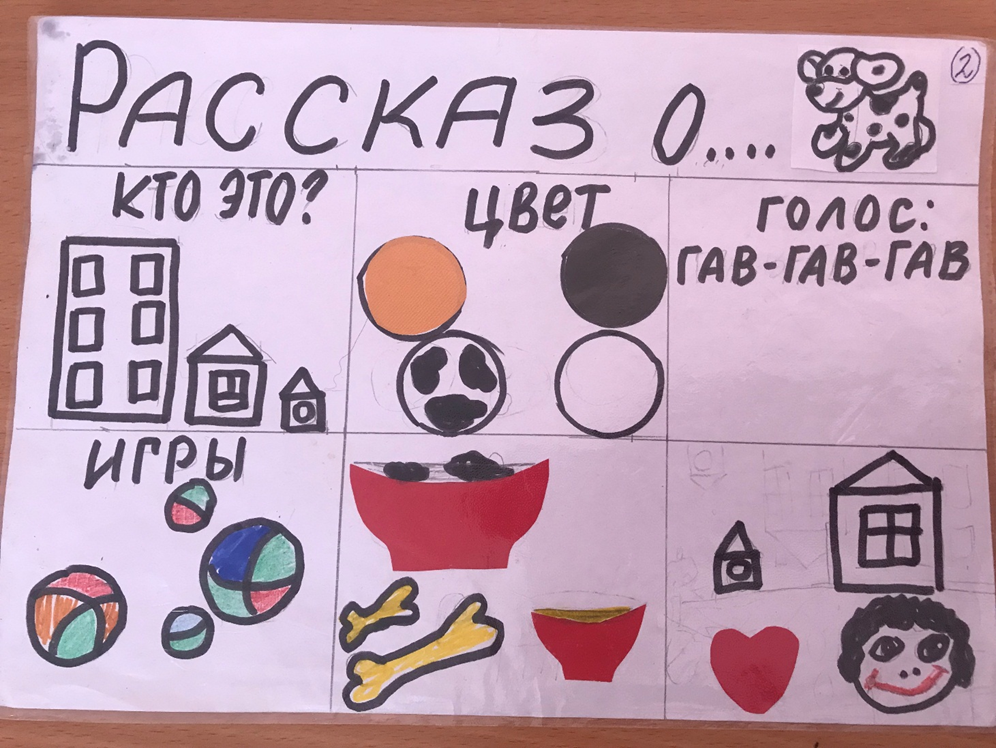 РАССКАЗ О....
2
КТО ЭТО?
ЦВЕТ
ГОЛОС:
ГАВ-ГАВ-ГАВ
ИГРЫ